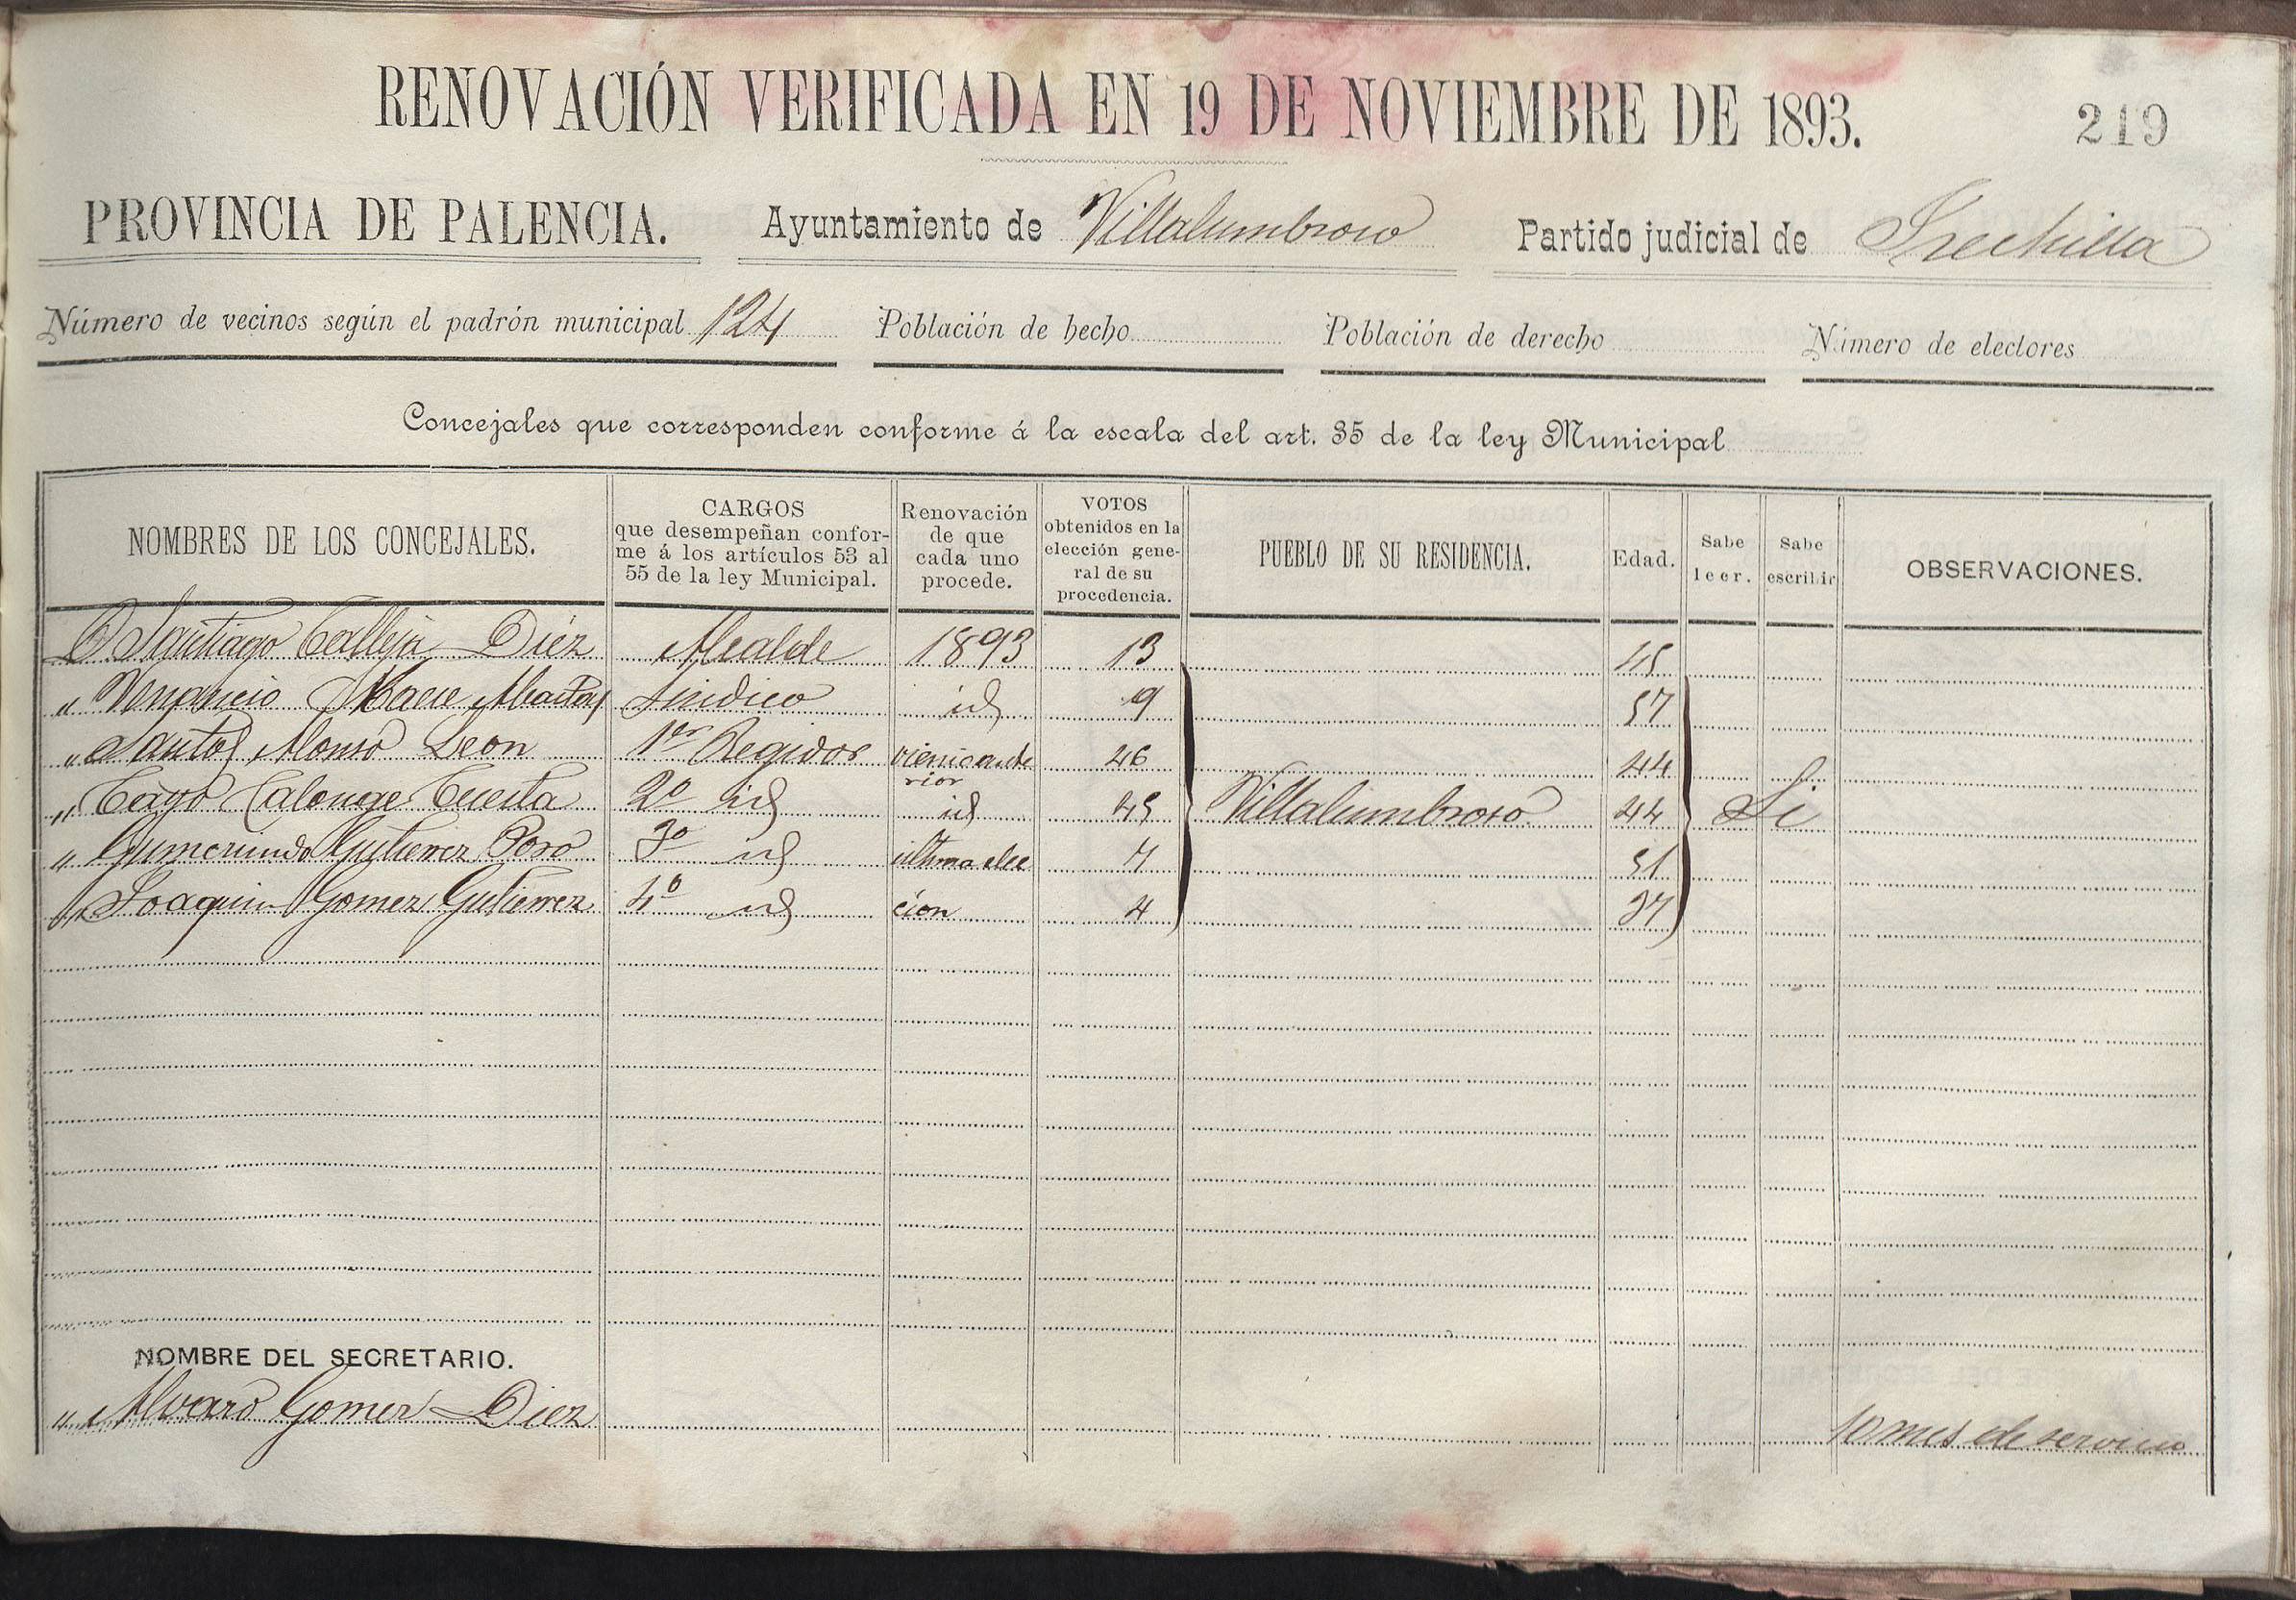 RENOVACIÓN VERIFICADA EN 19 DE NOVIEMBRE DE 1893. 219
PROVINCIA DE PALENCIA. Ayuntamiento de Villalumbroso Partido judicial de Frechilla
Número de vecinos según el padrón municipal 124 Población de hecho Población de derecho Número de electores
Concejales que corresponden conforme á la escala del art. 35 de la ley Municipal
NOMBRES DE LOS CONCEJALES. CARGOS que desempeñan conforme á los artículos 53 al 55 de la ley Municipal. Renovación de que cada uno procede. VOTOS obtenidos en la elección general de su procedencia. PUEBLO DE SU RESIDENCIA. Edad. Sabe leer. Sabe escribir OBSERVACIONES.
D Santiago Calleja Diez Alcalde 1893 13 45
" Venancio Abad Sindico id 9 57
" Santos Alonso Leon 1er Regidor vienio ante rior 46 44
" Calonge Cuesta 2º id id 45 Villalumbroso 44 Si
" Gumersindo Gutierrez Poro 3º id ultima elec 7 51
" Joaquin Gomez Gutierrez 4º id cion 4 37
NOMBRE DEL SECRETARIO.
" Alvaro Gomez Diez 10 mes de servicio